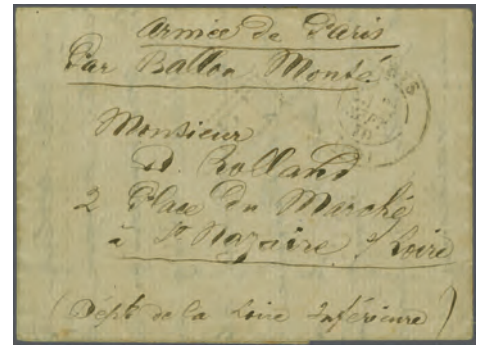 Armée de Paris
Par Ballon Monté
Monsieur
A. Rolland
2 Place du Marché
à St Nazaire s/ Loire
(Dépt. de la Loire Inférieure)